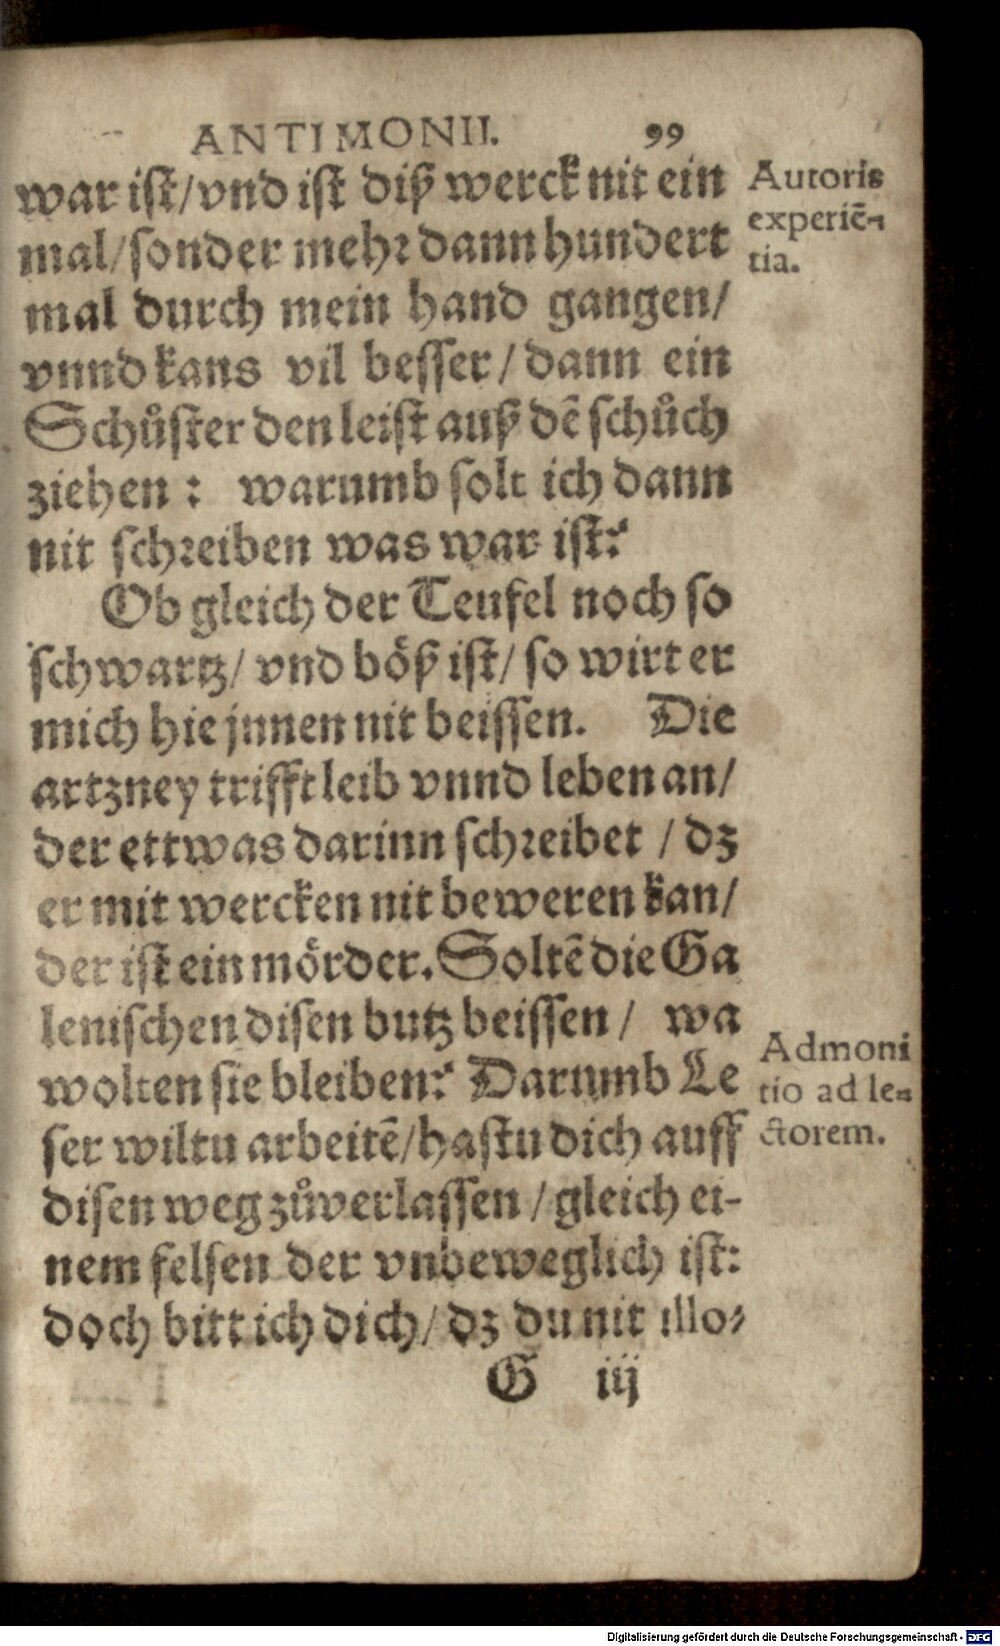 ANTIMONII. 99
war ist/vnd ist diß werck nit ein
mal/sonder mehr dann hundert
mal durch mein hand gangen/
vnnd kans vil besser/ dann ein
Schůster den leist auß dē schůch
ziehen: warumb solt ich dann
nit schreiben was war ist?
Ob gleich der Teufel noch so
schwartz/ vnd böß ist/ so wirt er
mich hie jnnen nit beissen. Die
artzney trifft leib vnnd leben an/
der ettwas darinn schreibet / dz
er mit wercken nit beweren kan/
der ist ein mörder. Soltē die Ga
lenischen disen butz beissen / wa
wolten sie bleiben? Darumb Le
ser wiltu arbeitē/hastu dich auff
disen weg zůverlassen / gleich ei-
nem felsen der vnbeweglich ist:
doch bitt ich dich/ dz du nit illo-
G iij
Autoris
experiē-
tia.
Admoni
tio ad le-
ctorem.
Digitalisierung gefördert durch die Deutsche Forschungsgemeinschaft - DFG